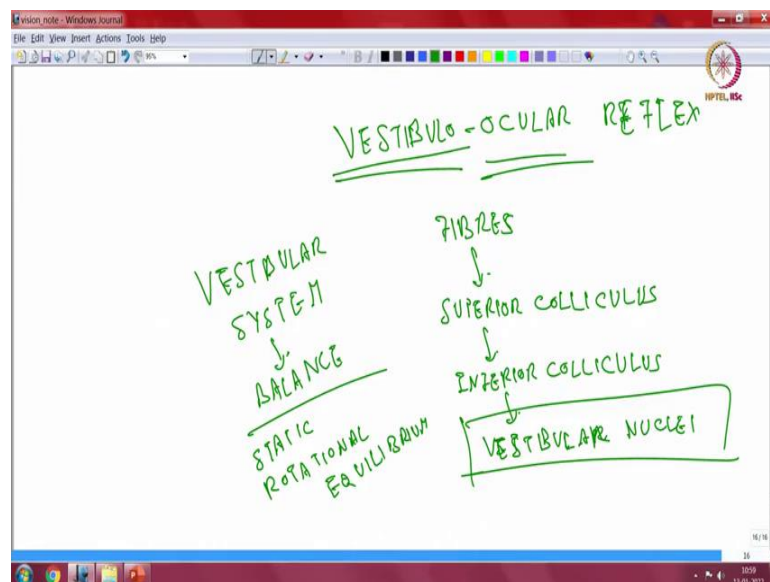 vision_note - Windows Journal
File Edit View Insert Actions Tools Help
95%
B I
NPTEL, IISc
VESTIBULO - OCULAR REFLEX
VESTIBULAR
SYSTEM
BALANCE
STATIC
ROTATIONAL
EQUILIBRIUM
FIBRES
SUPERIOR COLLICULUS
INFERIOR COLLICULUS
VESTIBULAR NUCLEI
16/16
16
10:59